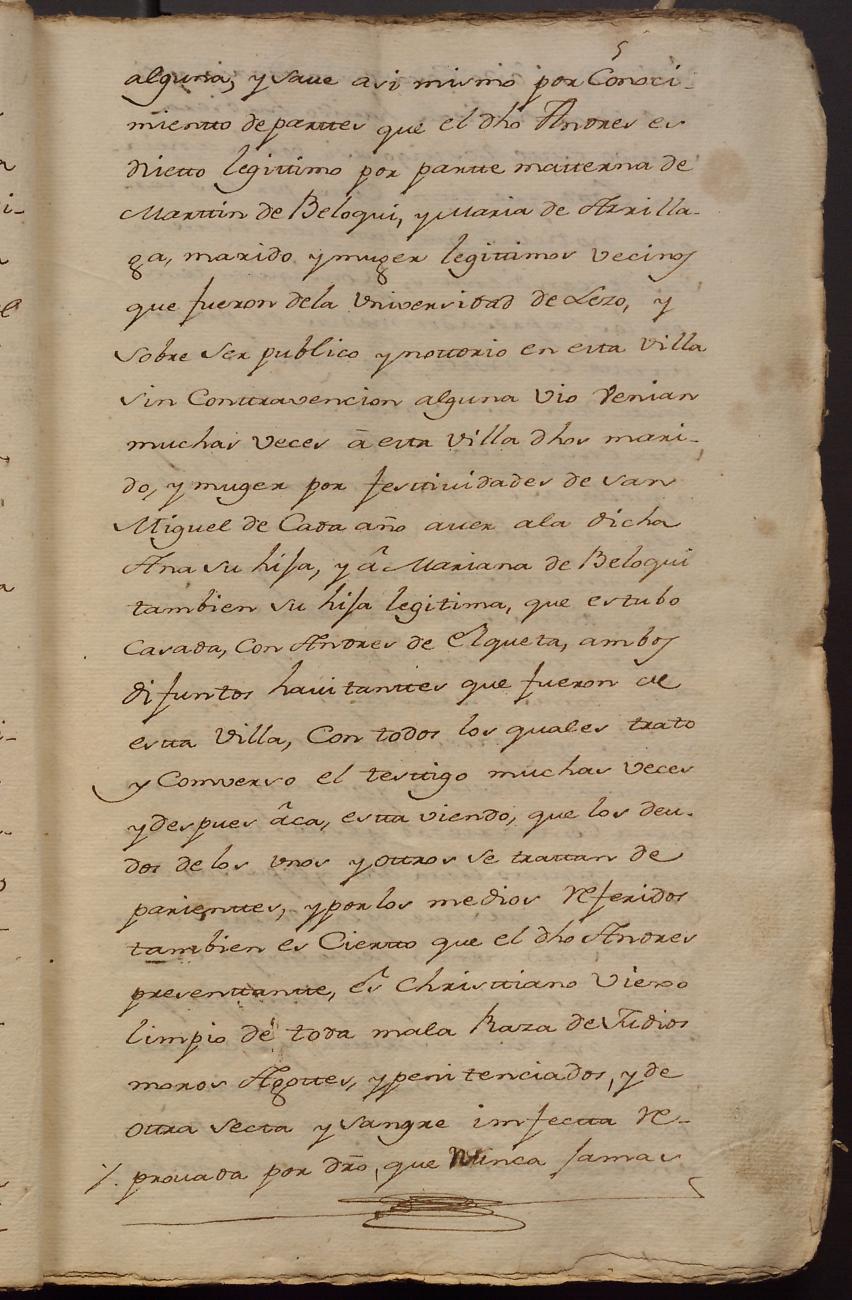 5
alguna, y saue asi mismo por Conoci-
miento de parttes que el dho Andres es
Nietto legittimo por partte matterna de
Marttin de Beloqui, y Maria de Arrilla-
ga, marido y muger legittimos vecinos
que fueron dela Vniversidad de Lezo, y
sobre ser publico y nottorio en esta villa
sin Conttravencion alguna vio Venian
muchas veces â esta villa dhos mari-
do, y muger por festtiuidades de san
Miguel de Cada año auer ala dicha
Ana su hija, y â Mariana de Beloqui
tambien su hija legitima, que estubo
Casada, Con Andres de Elqueta, ambos
difuntos hauitanttes que fueron de
estta Villa, Con todos los quales trato
y Converso el testtigo muchas veces
y despues âca, estta viendo, que los deu-
dos de los vnos y ottros se trattan de
parienttes, y por los medios referidos
tambien es Ciertto que el dho Andres
presenttantte, es Christtiano Viexo
limpio de toda mala Raza de Judios
moros Agottes, y penitenciados, y de
ottra secta y sangre imfectta re-
prouada por dro, que Nunca jamas